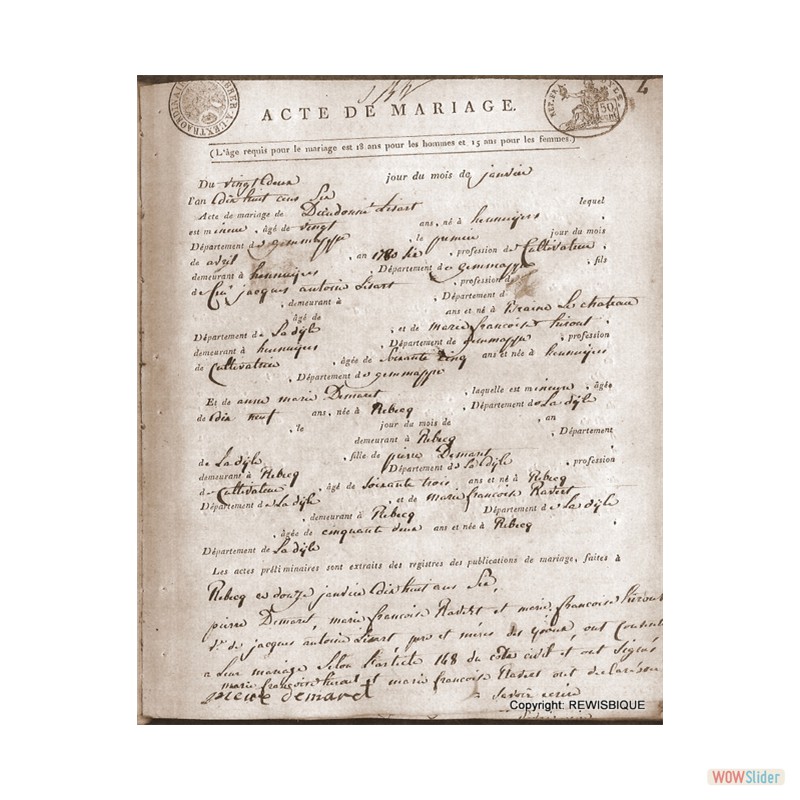 ACTE DE MARIAGE.
(L'âge requis pour le mariage est 18 ans pour les hommes et 15 ans pour les femmes.)
Du vingt deux jour du mois de janvier
l'an dix huit cens six
Acte de mariage de Dieudonné Lisart lequel
est mineur, âgé de vingt ans, né à hennuyers
Département de gemmappe, le premier jour du mois
de avril, an 1786, profession de Cultivateur,
demeurant à hennuyers, Département de gemmappe, fils
de jacques antoine Lisart, profession d
, demeurant à, Département d
âgé de ans et né à Braine Le chateau
Département de La dijle, et de marie françoise
demeurant à hennuyers, Département de gemmappe, profession
de Cultivatrice, âgée de Soixante Cinq ans et née à hennuyers
, Département de gemmappe
Et de anne marie Demaret, laquelle est mineure, âgée
de dix neuf ans, née à Rebecq, Département de La dijle
, le jour du mois de, an
demeurant à Rebecq, Département
de La dijle, fille de pierre Demaret
demeurant à Rebecq, Département de La dijle, profession
de Cultivateur, âgé de Soixante trois ans et né à Rebecq
Département de La dijle, et de marie françoise Ravert
, demeurant à Rebecq, Département de La dijle
, âgée de cinquante deux ans et née à Rebecq,
Département de La dijle
Les actes préliminaires sont extraits des registres des publications de mariage, faites à
Rebecq ce douze janvier dix huit cens six,
pierre Demaret, marie françoise Ravert et marie françoise
de jacques antoine Lisart, père et mères des époux, ont
a Leur mariage Selon l'article 148 du code civil et ont Signés
marie françoise et marie francoise Ravert ont declarées
pierre demaret Savoir ecrire
Copyright: REWISBIQUE
WOWSlider